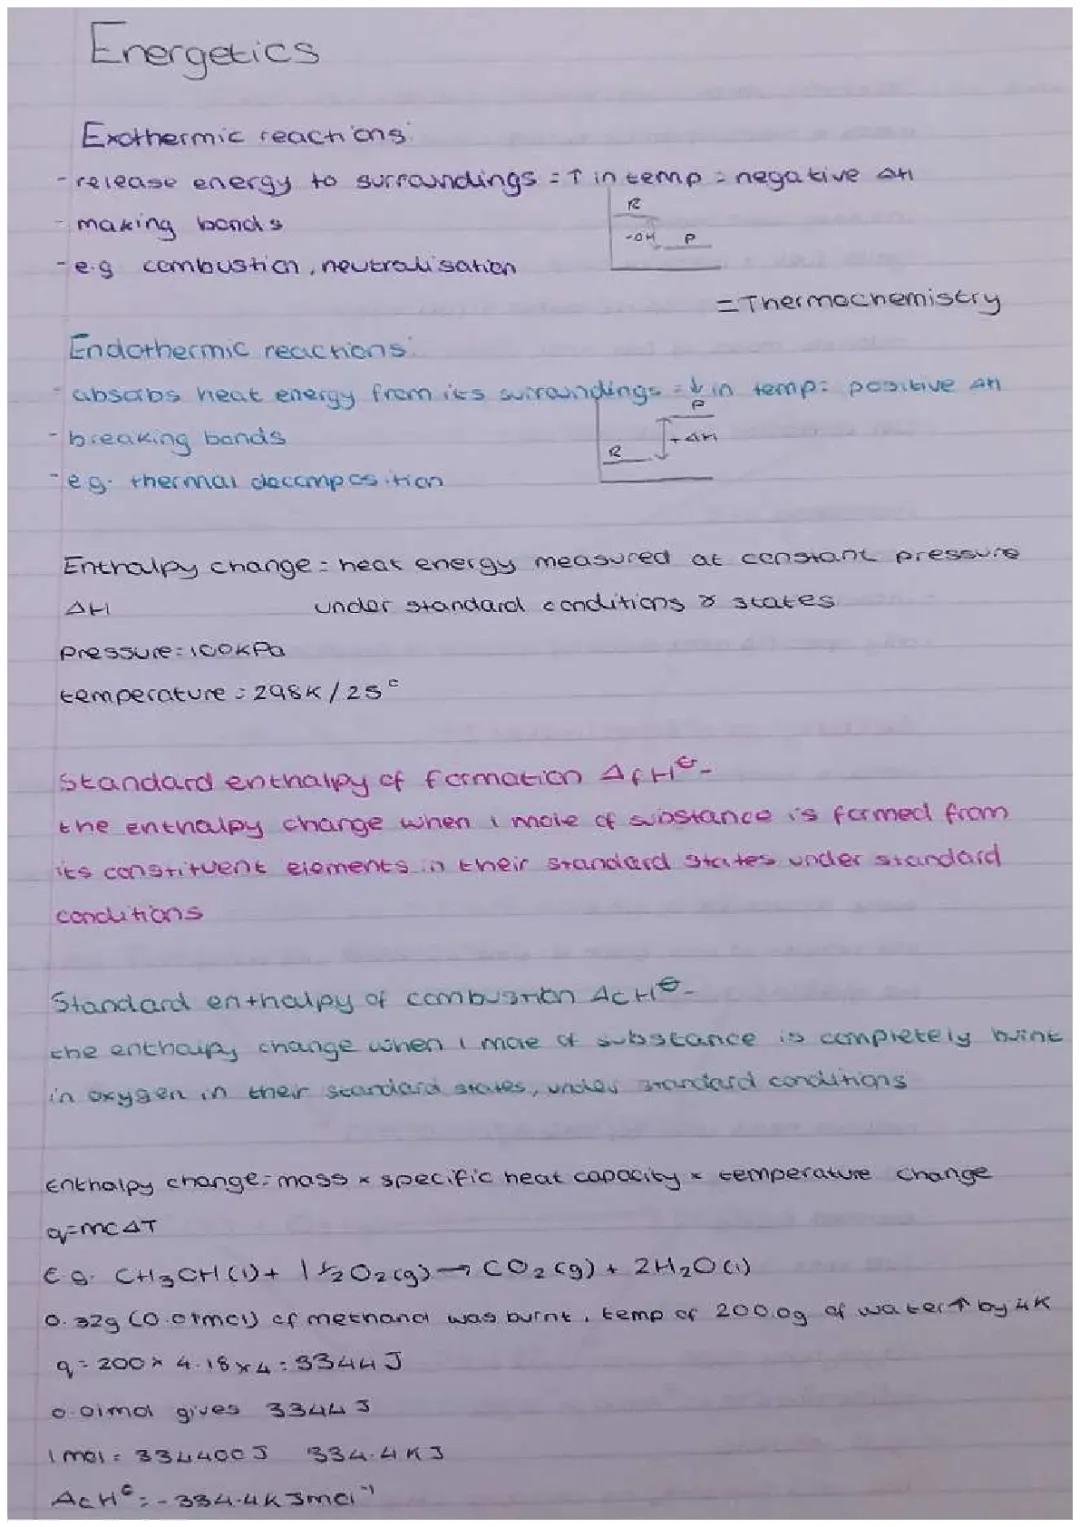 Energetics
Exothermic reactions:
- release energy to surroundings = ↑ in temp = negative ΔH
- making bonds
R
-ΔH P
- e.g combustion, neutralisation
= Thermochemistry
Endothermic reactions:
- absorbs heat energy from its surroundings = ↓ in temp = positive ΔH
P
- breaking bonds
+ΔH
R
- e.g. thermal decomposition
Enthalpy change = heat energy measured at constant pressure
ΔH under standard conditions & states
pressure = 100kPa
temperature = 298K / 25°
Standard enthalpy of formation ΔfH⊖-
the enthalpy change when 1 mole of substance is formed from
its constituent elements in their standard states under standard
conditions
Standard enthalpy of combustion ΔcH⊖-
the enthalpy change when 1 mole of substance is completely burnt
in oxygen in their standard states, under standard conditions
enthalpy change = mass × specific heat capacity × temperature change
q=mcΔT
e.g. CH3OH(l) + 1½O2(g) → CO2(g) + 2H2O(l)
0.32g (0.01mol) of methanol was burnt, temp of 200.0g of water ↑ by 4K
q = 200 × 4.18 × 4 = 3344J
0.01mol gives 3344J
1 mol = 334400J 334.4KJ
ΔcH⊖ = -334.4KJmol⁻¹